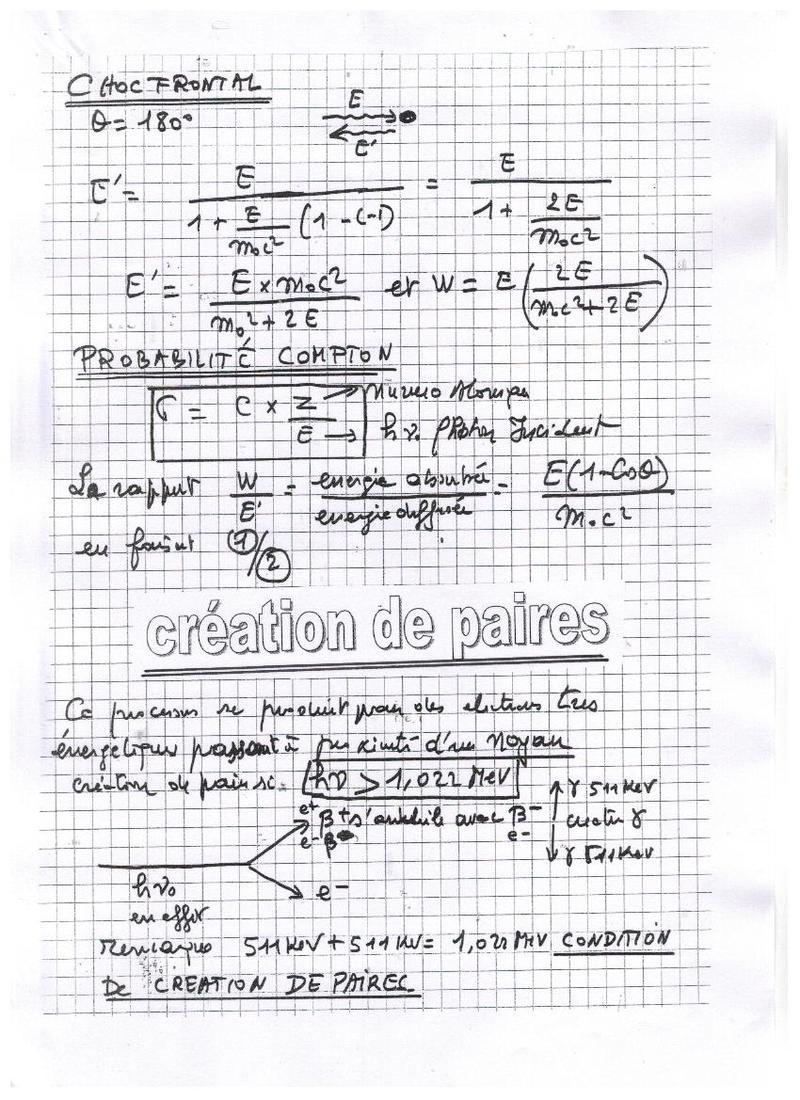 CHOC FRONTAL
θ = 180°
E
E'
E' = E / (1 + E/m₀c² (1-(-1)) = E / (1 + 2E/m₀c²)
E' = E × m₀c² / (m₀² + 2E) et W = E (2E / (m₀c² + 2E))
PROBABILITÉ COMPTON
σ = C × Z / E → Numero Atomique
→ hν. Photon Incident
Le rapport W/E' = energie absorbée / energie diffusée = E(1-Cosθ) / m₀c²
en faisant ①/②
création de paires
Ce processus se produit pour des electrons très
énergetique passant à proximité d'un Noyau
création de paire si. hν > 1,022 MeV
γ 511 KeV
e⁺ β⁺ s'annihile avec β⁻
e⁻ β e⁻
γ 511 KeV
hν₀ e⁻
en effet
Remarque 511 KeV + 511 KeV = 1,022 MeV CONDITION
De CREATION DE PAIREC